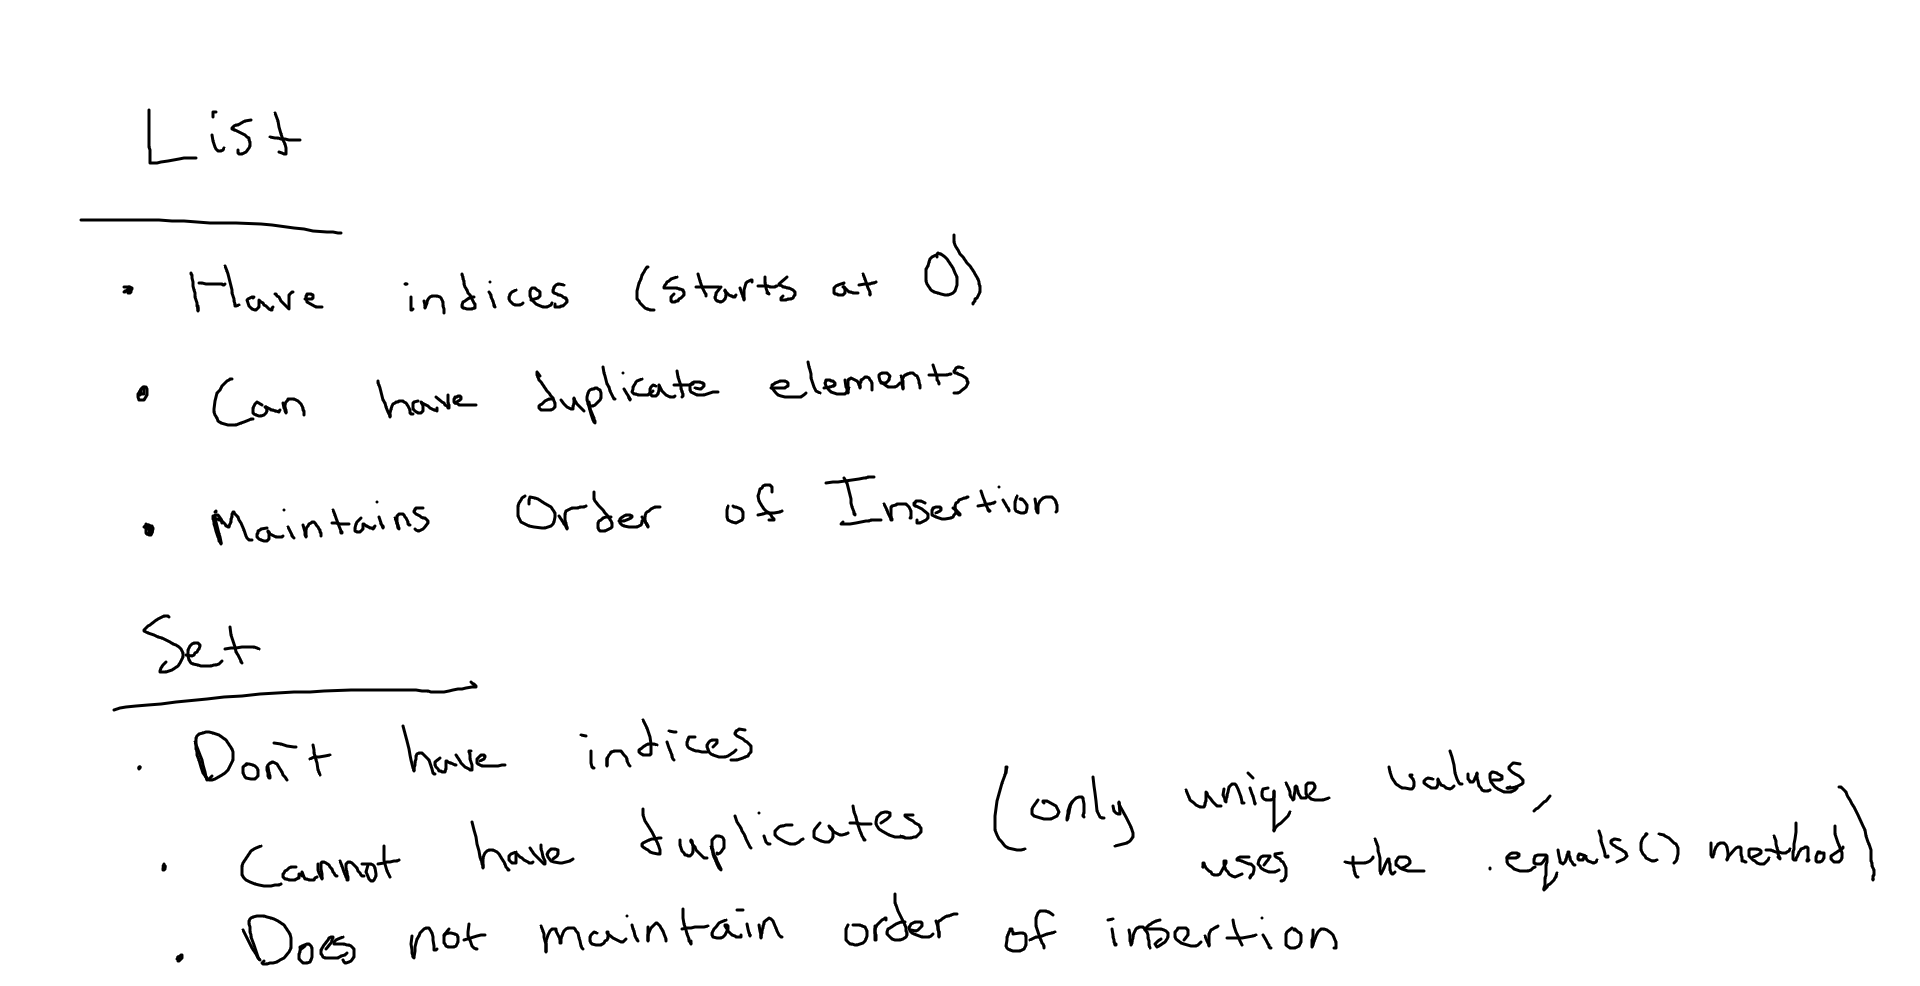 List
• Have indices (starts at 0)
• Can have duplicate elements
• Maintains Order of Insertion
Set
• Don't have indices
• Cannot have duplicates (only unique values,
uses the .equals() method)
• Does not maintain order of insertion